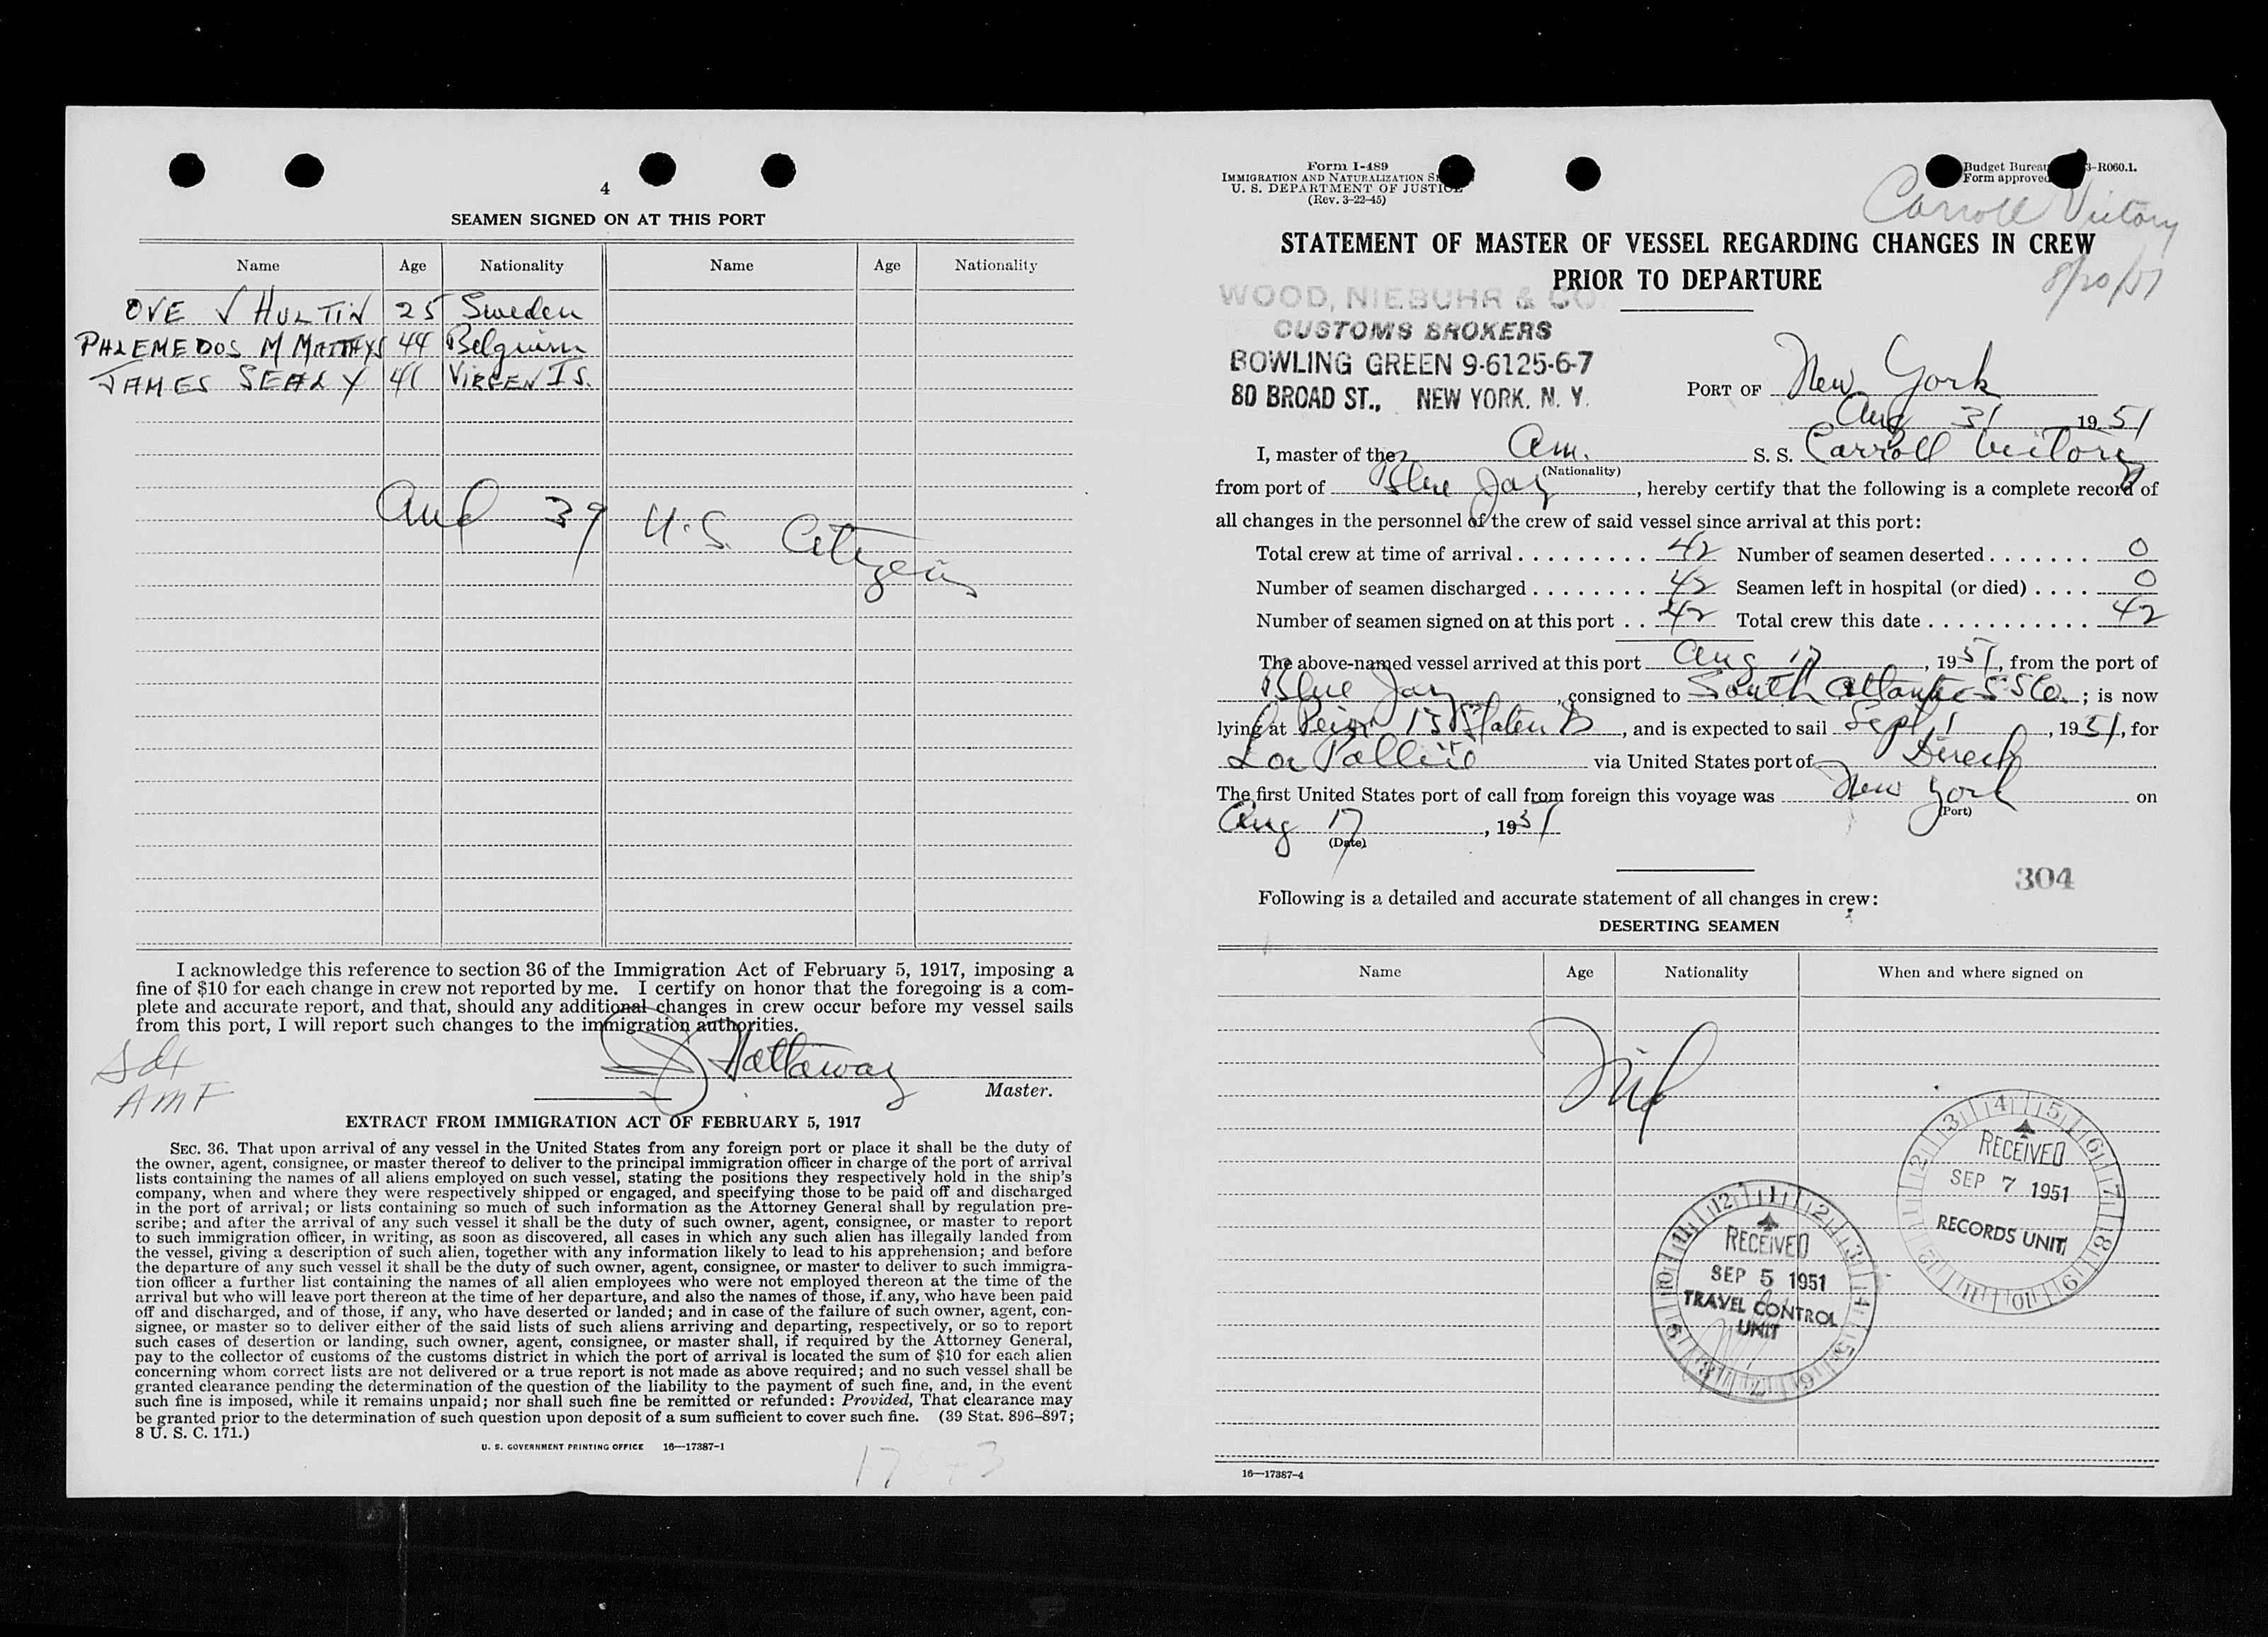 4
SEAMEN SIGNED ON AT THIS PORT
Name Age Nationality Name Age Nationality
OVE V HULTIN 25 Sweden
PHLEMEDOS M MATTHYS 44 Belguim
JAMES SEALY 41 VIRGEN IS.
and 39 U.S. Citizens
I acknowledge this reference to section 36 of the Immigration Act of February 5, 1917, imposing a
fine of $10 for each change in crew not reported by me. I certify on honor that the foregoing is a com-
plete and accurate report, and that, should any additional changes in crew occur before my vessel sails
from this port, I will report such changes to the immigration authorities.
Hattaway
Master.
AMF
EXTRACT FROM IMMIGRATION ACT OF FEBRUARY 5, 1917
SEC. 36. That upon arrival of any vessel in the United States from any foreign port or place it shall be the duty of
the owner, agent, consignee, or master thereof to deliver to the principal immigration officer in charge of the port of arrival
lists containing the names of all aliens employed on such vessel, stating the positions they respectively hold in the ship's
company, when and where they were respectively shipped or engaged, and specifying those to be paid off and discharged
in the port of arrival; or lists containing so much of such information as the Attorney General shall by regulation pre-
scribe; and after the arrival of any such vessel it shall be the duty of such owner, agent, consignee, or master to report
to such immigration officer, in writing, as soon as discovered, all cases in which any such alien has illegally landed from
the vessel, giving a description of such alien, together with any information likely to lead to his apprehension; and before
the departure of any such vessel it shall be the duty of such owner, agent, consignee, or master to deliver to such immigra-
tion officer a further list containing the names of all alien employees who were not employed thereon at the time of the
arrival but who will leave port thereon at the time of her departure, and also the names of those, if any, who have been paid
off and discharged, and of those, if any, who have deserted or landed; and in case of the failure of such owner, agent, con-
signee, or master so to deliver either of the said lists of such aliens arriving and departing, respectively, or so to report
such cases of desertion or landing, such owner, agent, consignee, or master shall, if required by the Attorney General,
pay to the collector of customs of the customs district in which the port of arrival is located the sum of $10 for each alien
concerning whom correct lists are not delivered or a true report is not made as above required; and no such vessel shall be
granted clearance pending the determination of the question of the liability to the payment of such fine, and, in the event
such fine is imposed, while it remains unpaid; nor shall such fine be remitted or refunded: Provided, That clearance may
be granted prior to the determination of such question upon deposit of a sum sufficient to cover such fine. (39 Stat. 896–897;
8 U. S. C. 171.)
U. S. GOVERNMENT PRINTING OFFICE 16—17387-1
Form I-489
IMMIGRATION AND NATURALIZATION
U. S. DEPARTMENT OF JUSTICE
(Rev. 3-22-45)
Budget Bureau 3-R060.1.
Form approved
Carroll Victory
8/20/51
STATEMENT OF MASTER OF VESSEL REGARDING CHANGES IN CREW
PRIOR TO DEPARTURE
WOOD, NIEBUHR & CO.
CUSTOMS BROKERS
BOWLING GREEN 9-6125-6-7
80 BROAD ST., NEW YORK, N. Y.
PORT OF New York
Aug 31 1951
I, master of the Am. S. S. Carroll Victory
(Nationality)
from port of Blue Jay, hereby certify that the following is a complete record of
all changes in the personnel of the crew of said vessel since arrival at this port:
Total crew at time of arrival 42 Number of seamen deserted 0
Number of seamen discharged 42 Seamen left in hospital (or died) 0
Number of seamen signed on at this port 42 Total crew this date 42
The above-named vessel arrived at this port Aug 17, 1951, from the port of
Blue Jay, consigned to South Atlantic SS Co.; is now
lying at Peir 13 Staten Is, and is expected to sail Sept 1, 1951, for
La Pallice via United States port of Direct
The first United States port of call from foreign this voyage was New York on
(Port)
Aug 17, 1951
(Date)
304
Following is a detailed and accurate statement of all changes in crew:
DESERTING SEAMEN
Name Age Nationality When and where signed on
Nil
RECEIVED
SEP 7 1951
RECORDS UNIT
RECEIVED
SEP 5 1951
TRAVEL CONTROL
UNIT
16—17387-4